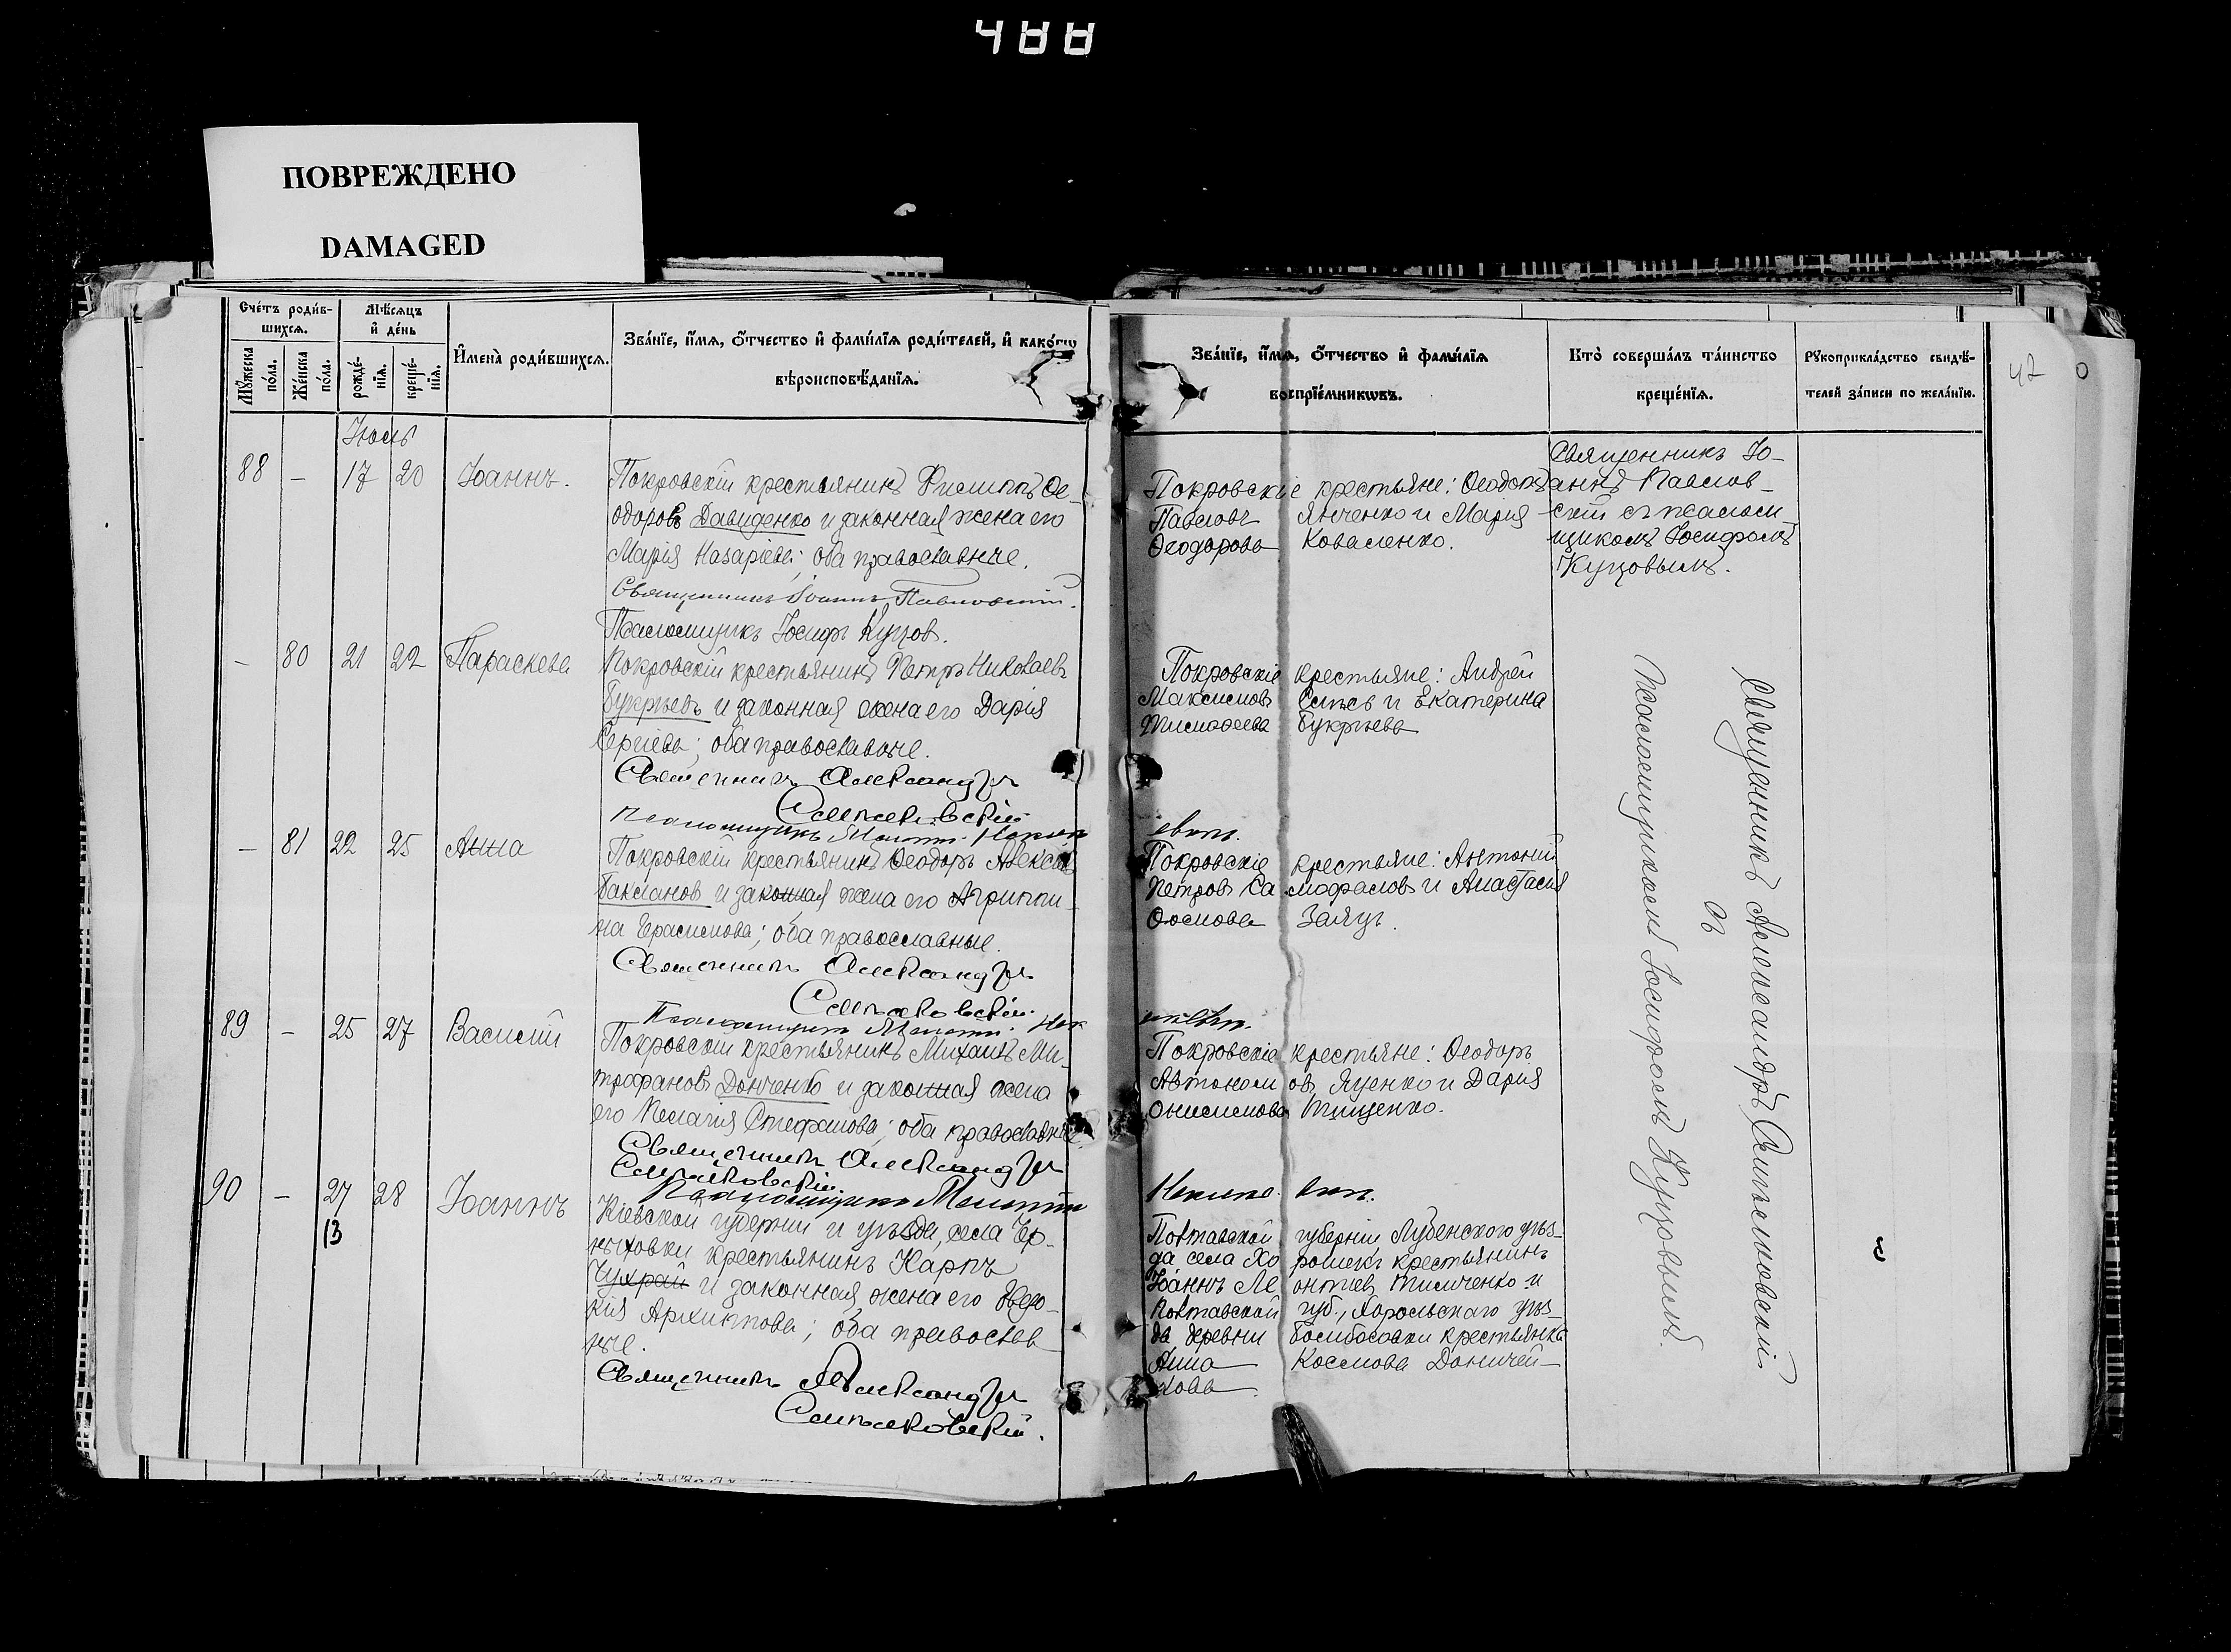 488
ПОВРЕЖДЕНО
DAMAGED
Счетъ родив-
шихся.
Мужеска пола.
Женска пола.
Мѣсяцъ
и день
рожде-
нія.
креще-
нія.
Имена родившихся.
Званіе, имя, отчество и фамилія родителей, и какогω
вѣроисповѣданія.
Званіе, имя, отчество и фамилія
воспріемникωвъ.
Кто совершалъ таинство
крещенія.
Рукоприкладство свидѣ-
телей записи по желанію.
42
Іюль
88 — 17 20 Іоаннъ.
Покровскій крестьянинъ Филиппъ Ѳе-
одоровъ Давиденко и законная жена его
Марія Назаріева; оба православные.
Священникъ Іоаннъ Павловскій.
Псаломщикъ Іосифъ Куцовъ.
Покровскіе крестьяне: Ѳеодоръ
Павловъ Янченко и Марія
Ѳеодорова Коваленко.
Священникъ Іо-
аннъ Павлов-
скій съ псалом
щикомъ Іосифомъ
Куцовымъ.
— 80 21 22 Параскева
Покровскій крестьянинъ Петръ Николаевъ
Букрѣевъ и законная жена его Дарія
Сергіева; оба православные.
Священникъ Александръ
Сипько́вскій
Псаломщикъ
Покровскіе крестьяне: Андрей
Максимовъ и Екатерина
Тимоѳеева Букрѣева
— 81 22 25 Анна
Покровскій крестьянинъ Ѳеодоръ Алексѣевъ
Баклановъ и законная жена его Агриппи-
на Герасимова; оба православные.
Священникъ Александръ
Псаломщикъ
Покровскіе крестьяне: Антоній
Петровъ Самофаловъ и Анастасія
Заяцъ.
89 — 25 27 Василій
Покровскій крестьянинъ Михаилъ Ми-
трофановъ Донченко и законная жена
его Пелагія Стефанова; оба православные
Священникъ Александръ
Псаломщикъ
Покровскіе крестьяне: Ѳеодоръ
Автономовъ Яценко и Дарія
Онисимова Тищенко.
90 — 27 28 Іоаннъ
13
Кіевской губерніи и уѣзда, села Чер-
няховки крестьянинъ Карпъ
Чухрай и законная жена его Евдо-
кія Архиппова; оба православ-
ные.
Священникъ Александръ
Полтавской губерніи Лубенского уѣз-
да села Хорошекъ крестьянинъ
Іоаннъ Леонтіевъ Тимченко и
Полтавской губ., Хорольскаго уѣз-
да деревни крестьянка
Анна Космова
Священникъ Александръ
съ
псаломщикомъ Іосифомъ Куцовымъ.